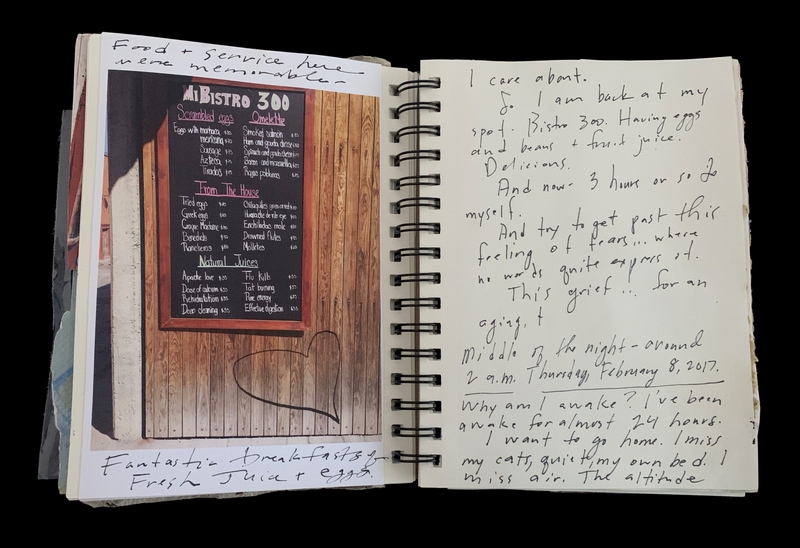 Food + Service here
were memorable-
MiBISTRO 300
Scrambled eggs
Eggs with machaca
mexicana
Sausage
Azteca
Tirados
Omelette
Smoked salmon
Ham and gouda cheese
Spinach and goat cheese
Bacon and mozzarella
Rajas poblanas
From The House
Fried eggs
Greek eggs
Croque Madame
Benedicts
Rancheros
Chilaquiles
Huarache de rib eye
Enchiladas mole
Drowned flutes
Molletes
Natural Juices
Apache love
Dose of calcium
Rehidratation
Deep cleaning
Flu Kills
Fat burning
Pure energy
Effective digestion
Fantastic breakfasts
Fresh Juice + eggs.
I care about.
So I am back at my
spot. Bistro 300. Having eggs
and beans + fruit juice.
Delicious.
And now- 3 hours or so to
myself.
And try to get past this
feeling of tears... where
no words quite express it.
This grief... for an
aging, t
Middle of the night - around
2 a.m. Thursday, February 8, 2017.
Why am I awake? I've been
awake for almost 24 hours.
I want to go home. I miss
my cats, quiet, my own bed. I
miss air. The altitude